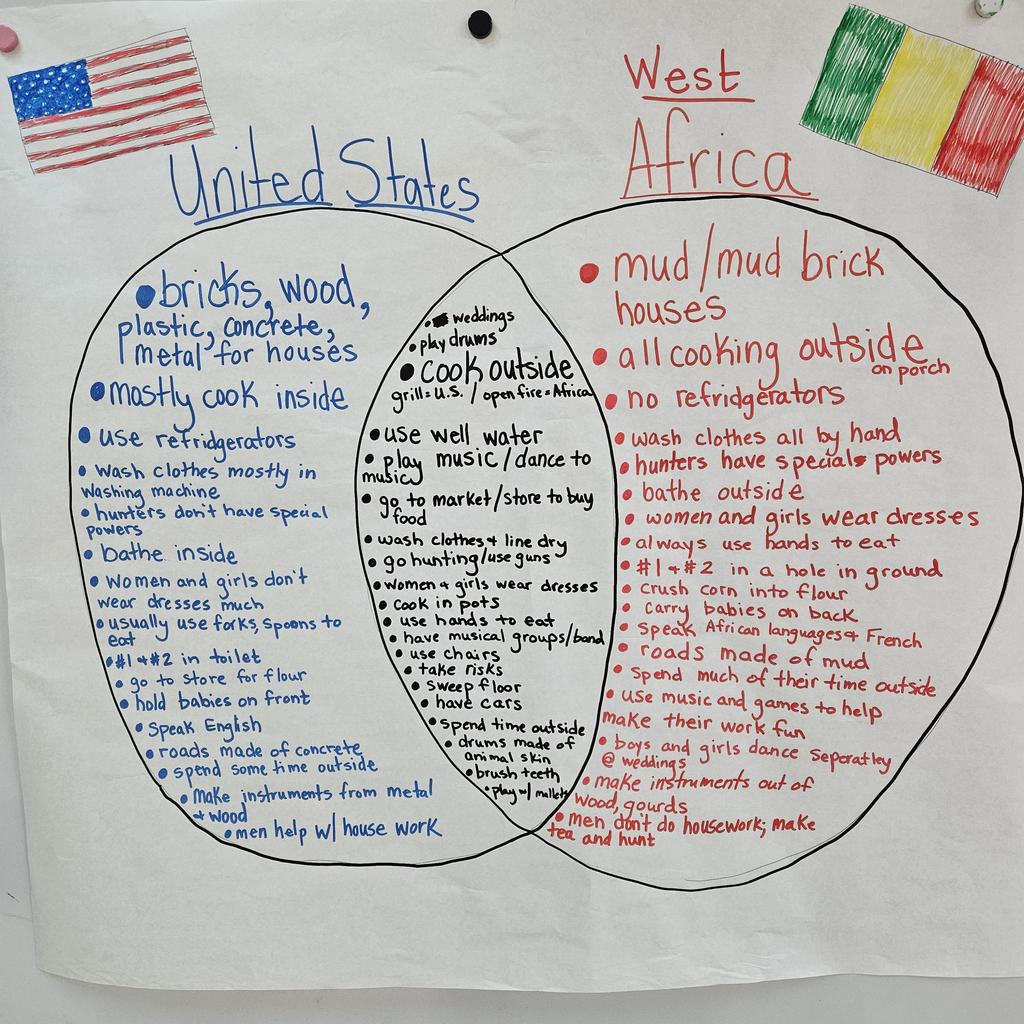 United States
• bricks, wood,
plastic, concrete,
metal for houses
• mostly cook inside
• use refridgerators
• wash clothes mostly in
washing machine
• hunters don't have special
powers
• bathe inside
• women and girls don't
wear dresses much
• usually use forks, spoons to
eat
• #1 + #2 in toilet
• go to store for flour
• hold babies on front
• Speak English
• roads made of concrete
• spend some time outside
• make instruments from metal
+ wood
• men help w/ house work
• weddings
• play drums
• cook outside
grill = U.S. / open fire = Africa
• use well water
• play music / dance to
music
• go to market/store to buy
food
• wash clothes + line dry
• go hunting/use guns
• women + girls wear dresses
• cook in pots
• use hands to eat
• have musical groups/band
• use chairs
• take risks
• sweep floor
• have cars
• spend time outside
• drums made of
animal skin
• brush teeth
• play w/ mallets
West
Africa
• mud/mud brick
houses
• all cooking outside
on porch
• no refridgerators
• wash clothes all by hand
• hunters have specials powers
• bathe outside
• women and girls wear dresses
• always use hands to eat
• #1 + #2 in a hole in ground
• crush corn into flour
• carry babies on back
• Speak African languages + French
• roads made of mud
• Spend much of their time outside
• use music and games to help
make their work fun
• boys and girls dance seperatley
@ weddings
• make instruments out of
wood, gourds
• men don't do housework; make
tea and hunt